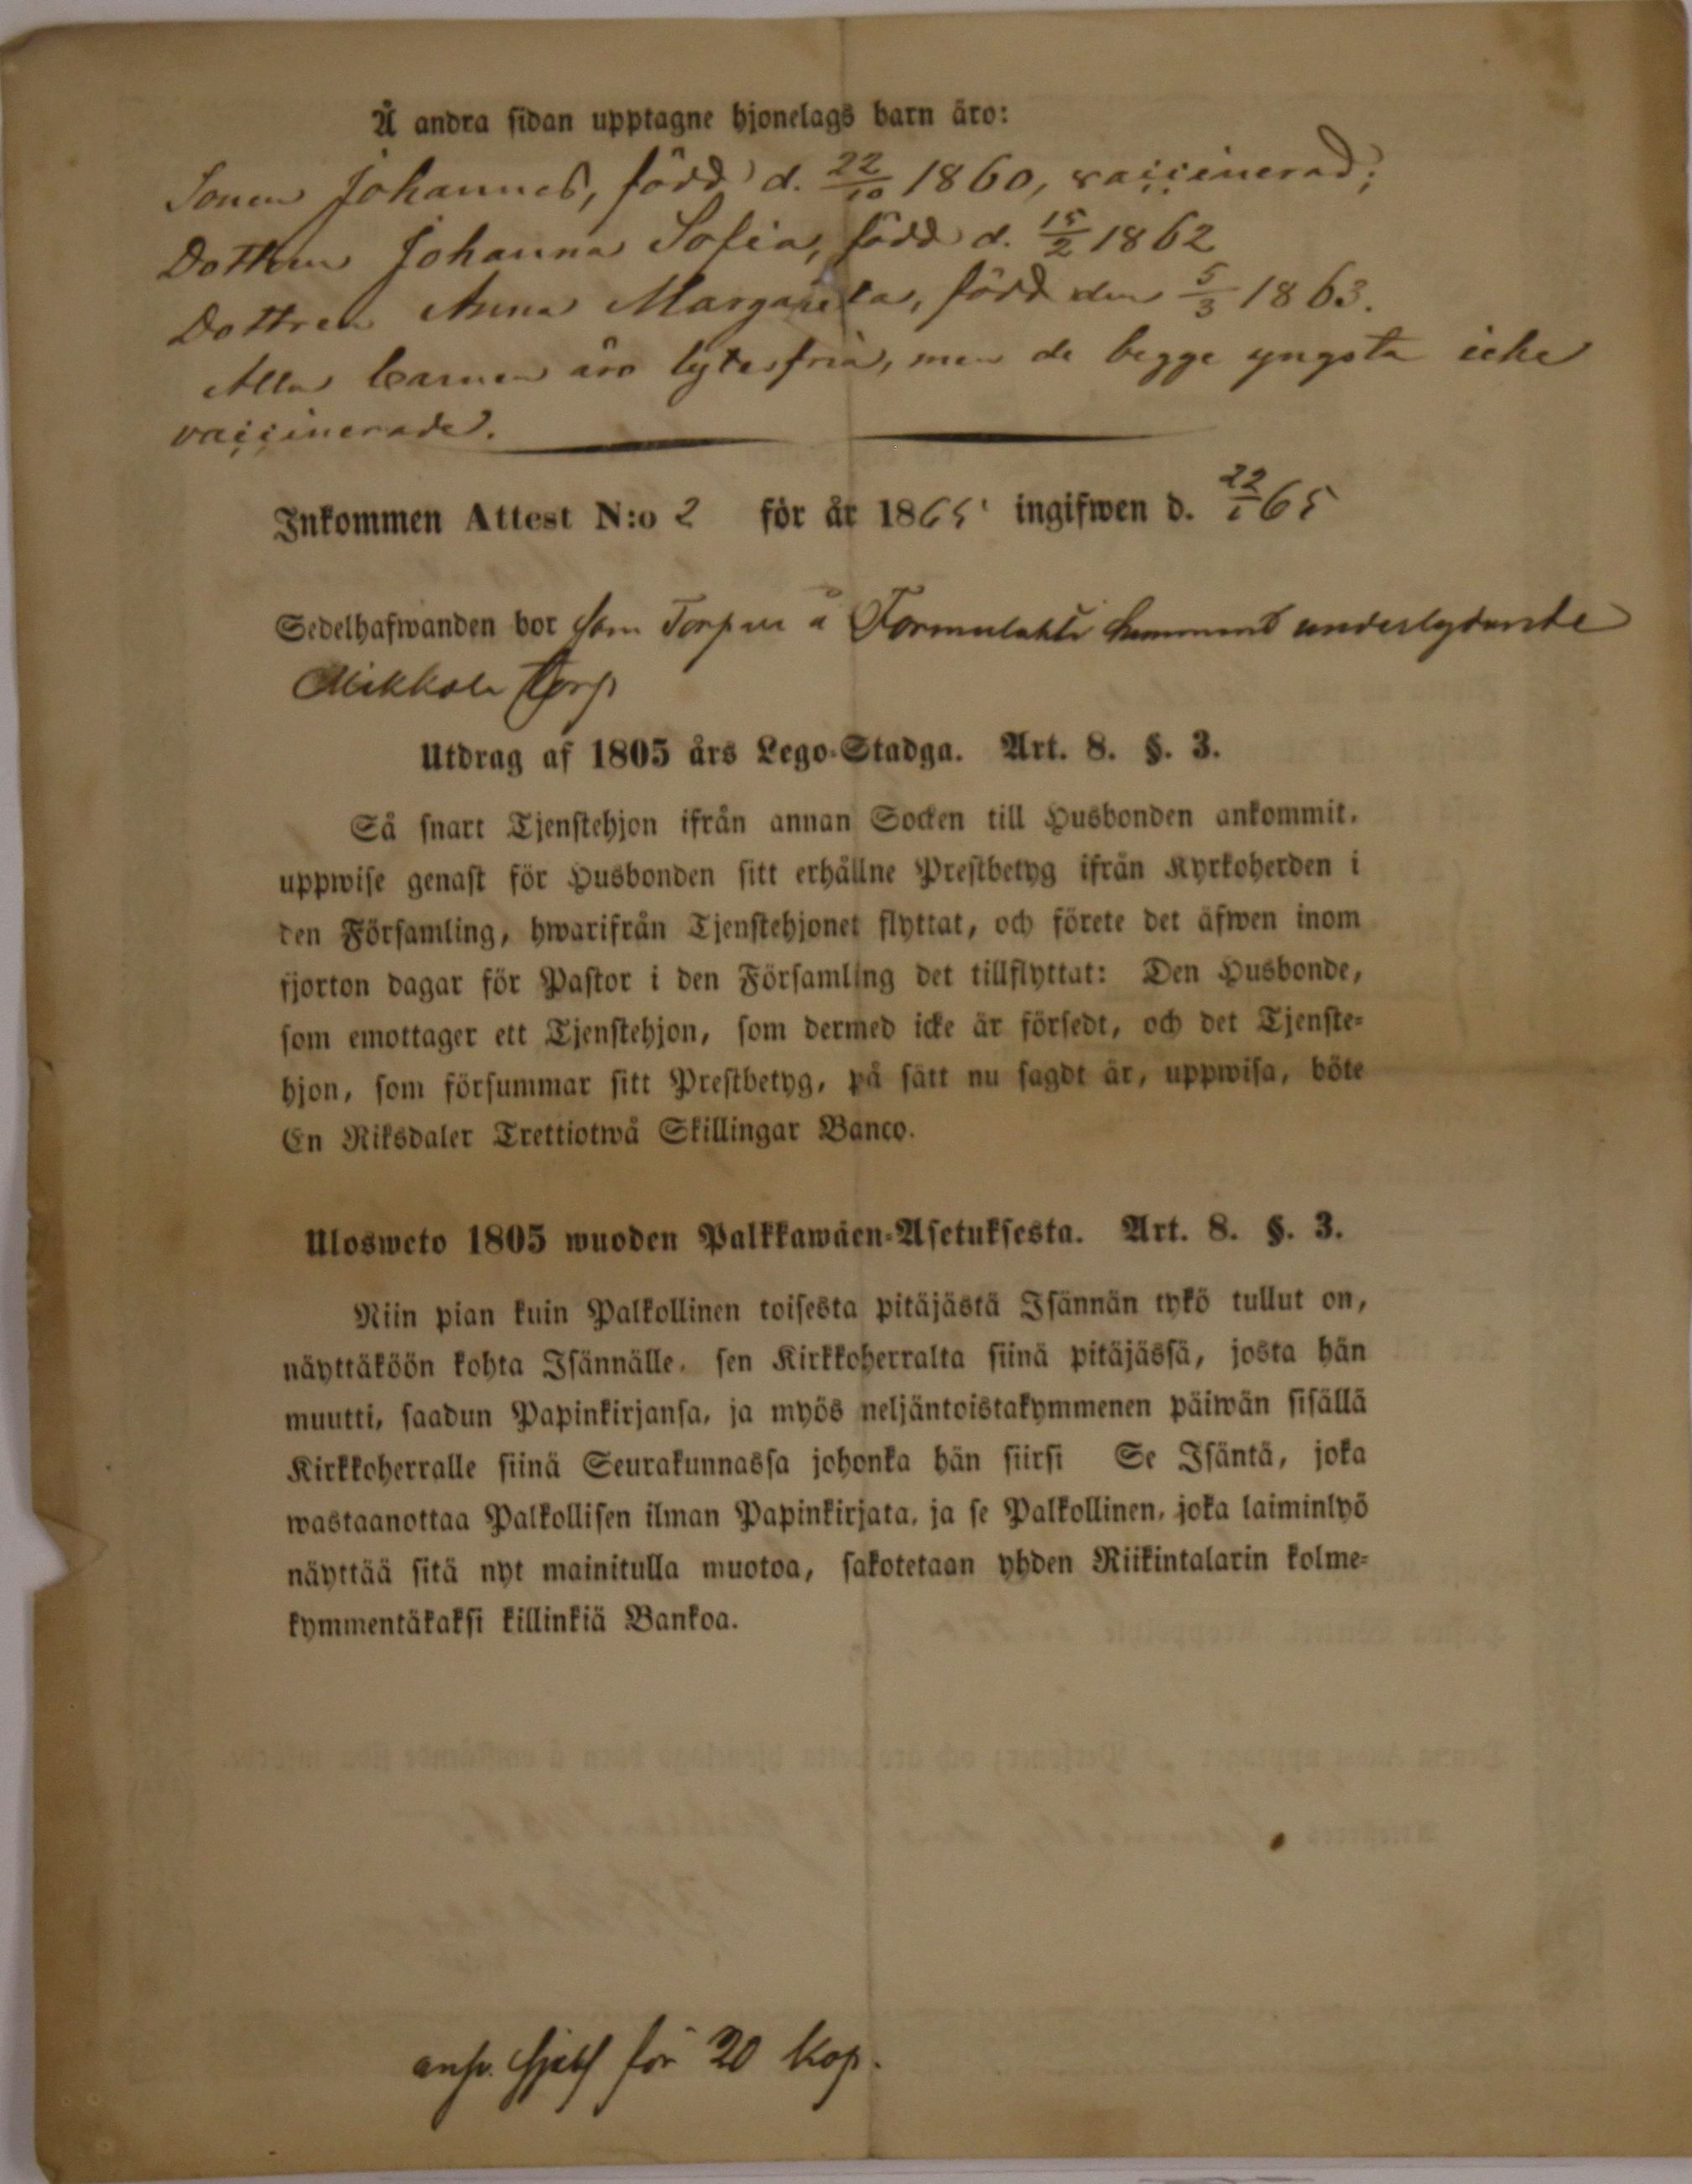 Å andra sidan upptagne hjonelags barn äro:
Sonen Johannes, född d. 22/10 1860, vaccinerad;
Dottren Johanna Sofia, född d. 15/2 1862
Dottren Anna Margareta, född den 5/3 1863.
Alla barnen äro lytesfria, men de begge yngsta icke
vaccinerade.
Inkommen Attest N:o 2 för år 1865 ingifwen d. 22/1 65
Sedelhafwanden bor som Torpare å underlydande
Mikkola torp
Utdrag af 1805 års Lego-Stadga. Art. 8. §. 3.
Så snart Tjenstehjon ifrån annan Socken till Husbonden ankommit,
uppwise genast för Husbonden sitt erhållne Prestbetyg ifrån Kyrkoherden i
den Församling, hwarifrån Tjenstehjonet flyttat, och förete det äfwen inom
fjorton dagar för Pastor i den Församling det tillflyttat: Den Husbonde,
som emottager ett Tjenstehjon, som dermed icke är försedt, och det Tjenste-
hjon, som försummar sitt Prestbetyg, på sätt nu sagdt är, uppwisa, böte
En Riksdaler Trettiotwå Skillingar Banco.
Ulosweto 1805 wuoden Palkkawäen-Asetuksesta. Art. 8. §. 3.
Niin pian kuin Palkollinen toisesta pitäjästä Isännän tykö tullut on,
näyttäköön kohta Isännälle, sen Kirkkoherralta siinä pitäjässä, josta hän
muutti, saadun Papinkirjansa, ja myös neljäntoistakymmenen päiwän sisällä
Kirkkoherralle siinä Seurakunnassa johonka hän siirsi Se Isäntä, joka
wastaanottaa Palkollisen ilman Papinkirjata, ja se Palkollinen, joka laiminlyö
näyttää sitä nyt mainitulla muotoa, sakotetaan yhden Riikintalarin kolme-
kymmentäkaksi killinkiä Bankoa.
för 20 kop.